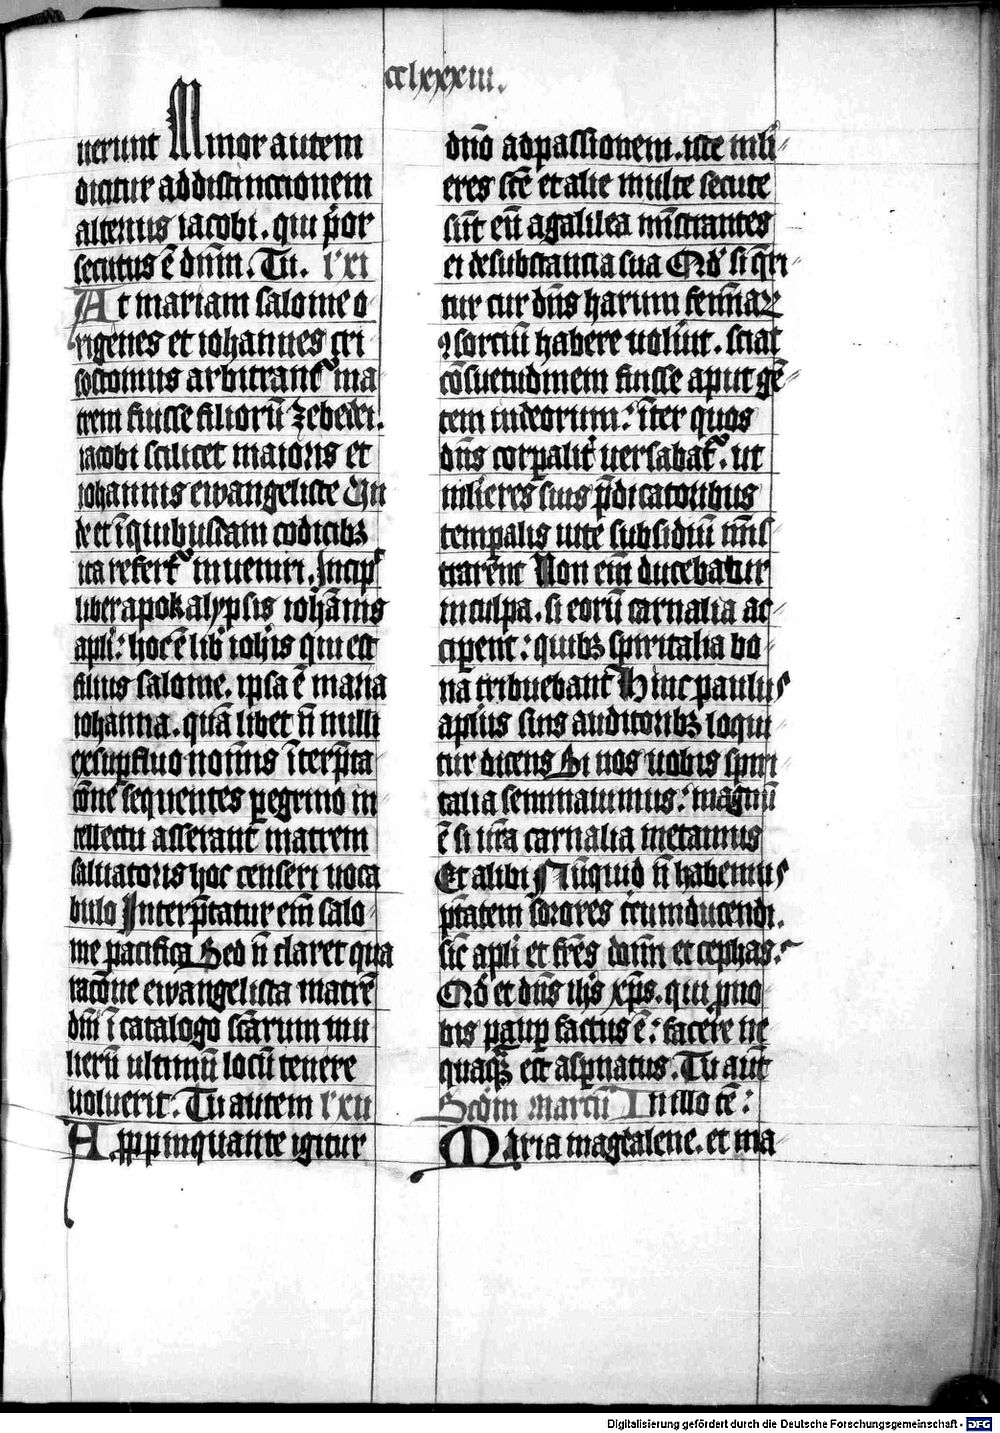 cclxxxiii.
uerunt Minor autem
dicitur ad distinctionem
alterius iacobi. qui p̍or
secutus ē dn̄m. Tu. lxi
At mariam salome o
rigenes et iohannes cri
sostomus arbitrant᷑ ma
trem fuisse filiorū zebedei.
iacobi scilicet maioris et
iohannis ewangeliste Vn
de et ī quibusdam codicibꝫ
ita refert᷑ inueniri. Incip̄
liber apokalypsis ioh̄annis
apl̄i: hoc ē lib̄ ioh̄is qui est
filius salome. ipsa ē maria
iohanna. quā libet n̄ nulli
exsup̄fluo noīnis īterp̄ta
cōne sequentes ꝑegrino in
tellectu asserant matrem
saluatoris hoc censeri uoca
bulo Interp̄tatur em̄ salo
me pacifica Sed n̄ claret qua
racōne ewangelista matrē
dn̄i ī catalogo sc̄arum mu
lierū ultimū locū tenere
uoluerit. Tu autem lxii
Appropinquante igitur
dn̄o ad passionem. iste muli
eres sc̄e et alie multe secute
sūt eū a galilea mīstrantes
ei de substancia sua Qd̄ si q̄ri
tur cur dn̄s harum femīaꝝ
ꝯsortiū habere uoluit. sciat
cōsuetudinem fuisse aput gē
tem iudeorum: īter quos
dn̄s corꝑalit̄ uersabat᷑. ut
mulieres suis p̄dicatoribus
temꝑalis uite subsidiū mīs
trarent Non em̄ ducebatur
in culpa. si eorū carnalia ac
ciperent: quibꝫ spiritalia bo
na tribuebant᷑ Hinc paulus
apl̄us suis auditoribꝫ loqui
tur dicens Si nos uobis spiri
talia seminauimus: magnū
ē si ur̄a carnalia metamus
Et alibi Nūquid n̄ habemus
pt̄atem sorores circumducendi.
sic̄ apl̄i et fr̄es domī et cephas:
Qd̄ et dn̄s ih̄s xp̄s. qui pro no
bis pauꝑ factus ē: facere ne
quaqꝫ est asp̄natus. Tu aut̄
Scd̄m Marcū In illo tē:
Maria magdalene. et ma
Digitalisierung gefördert durch die Deutsche Forschungsgemeinschaft - DFG